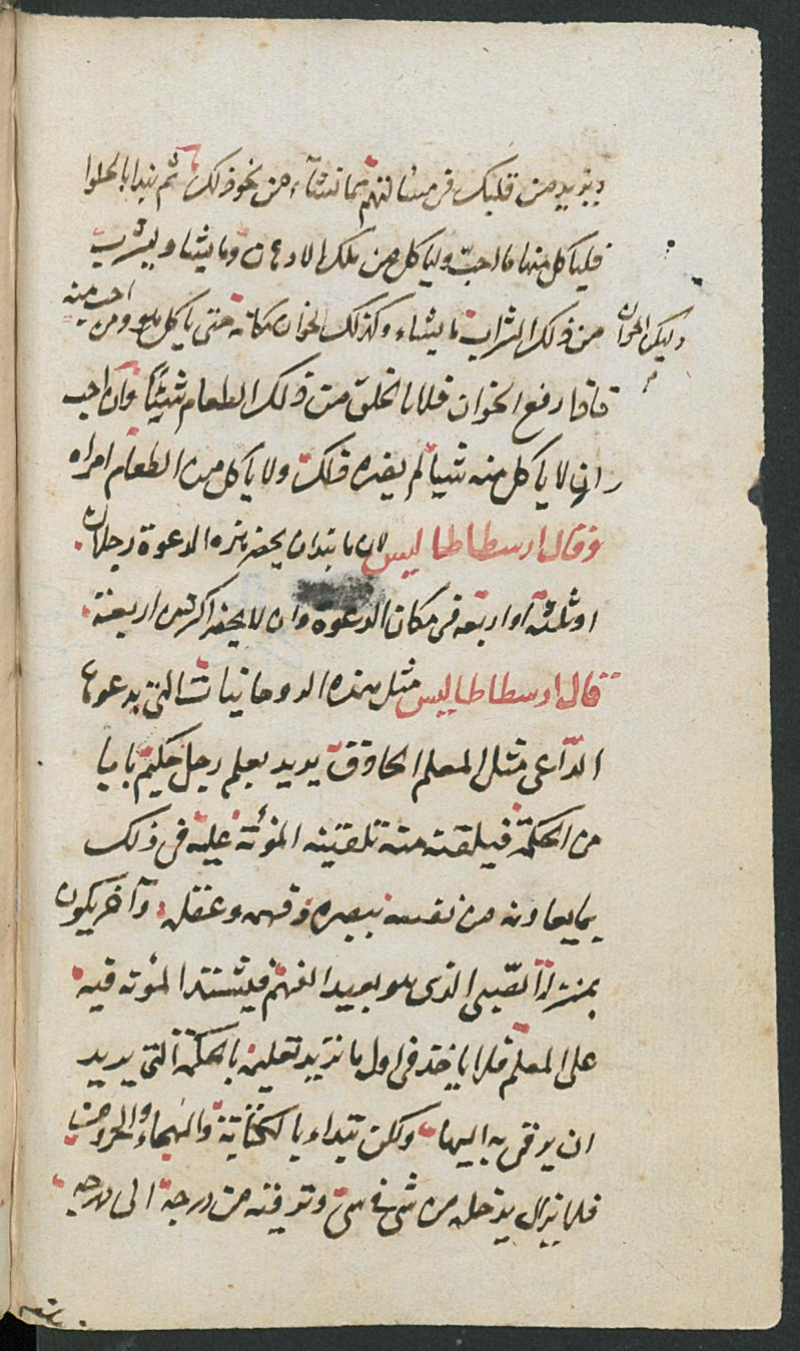 ويزيد من قلبك في مسالتهم بما تشآء من نحو ذلك ثم يبدا بالحلوا
فلياكل منها ما احب ولياكل من تلك الادهان وما يشا ويشرب
من ذلك الشراب ما يشاء وكذلك الخوان مكانه حتى ياكل هو ومن احب منه
وليكن الخوان
فاذا رفع الخوان فلا ياكلن من ذلك الطعام شيئا وان احب
ان لا ياكل منه شيا لم يضره ذلك ولا ياكل من الطعام امراه
وقال ارسطاطاليس لان ما بد ان يحضر هذه الدعوة رجلان
او ثلثة او اربعة في مكان الدعوة وان لا يحضر اكثر من اربعة
قال ارسطاطاليس مثل هذه الروحانيات التي يدعوها
الداعي مثل المعلم الحاذق يريد يعلم رجل حكيم بابا
من الحكمة فيلقنه منه تلقينه المؤنة عليه في ذلك
بما يعاونه من نفسه ببصره وفهمه وعقله وآخر يكون
بمنزلة الصبي الذي هو بعيد الفهم فيشتد المؤنه فيه
على المعلم فلا ياخذ في اول ما يريد تعليمه بالحكمة التي يريد
ان يوقى به اليها ولكن تبداء بالكتابة والهجاء والحروف
فلا يزال يدخله من شئ في شئ وترقيه من درجة الى درجه